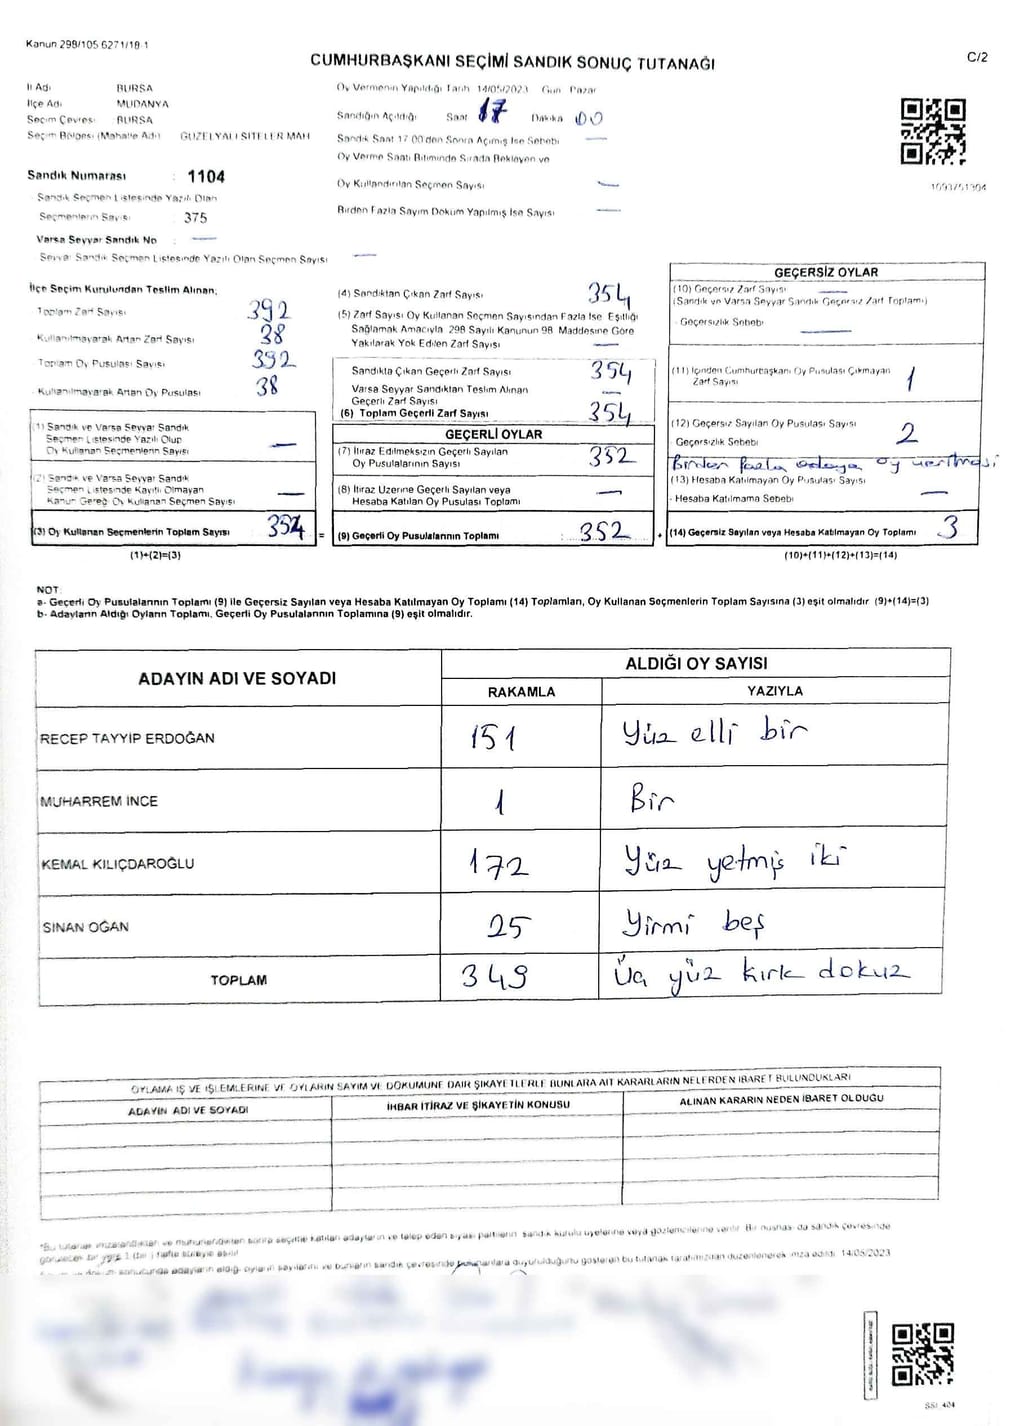 Kanun 298/105 6271/18-1
CUMHURBAŞKANI SEÇİMİ SANDIK SONUÇ TUTANAĞI
C/2
İl Adı BURSA
İlçe Adı MUDANYA
Seçim Çevresi BURSA
Seçim Bölgesi (Mahalle Adı) GÜZELYALI SİTELER MAH
Sandık Numarası : 1104
Sandık Seçmen Listesinde Yazılı Olan
Seçmenlerin Sayısı : 375
Varsa Seyyar Sandık No : —
Seyyar Sandık Seçmen Listesinde Yazılı Olan Seçmen Sayısı —
Oy Vermenin Yapıldığı Tarih 14/05/2023 Gün Pazar
Sandığın Açıldığı Saat 17 Dakika 00
Sandık Saat 17 00'den Sonra Açılmış İse Sebebi —
Oy Verme Saati Bitiminde Sırada Bekleyen ve
Oy Kullandırılan Seçmen Sayısı —
Birden Fazla Sayım Döküm Yapılmış İse Sayısı —
1093751304
İlçe Seçim Kurulundan Teslim Alınan;
Toplam Zarf Sayısı 392
Kullanılmayarak Artan Zarf Sayısı 38
Toplam Oy Pusulası Sayısı 392
Kullanılmayarak Artan Oy Pusulası 38
(1) Sandık ve Varsa Seyyar Sandık
Seçmen Listesinde Yazılı Olup
Oy Kullanan Seçmenlerin Sayısı —
(2) Sandık ve Varsa Seyyar Sandık
Seçmen Listesinde Kayıtlı Olmayan
Kanun Gereği Oy Kullanan Seçmen Sayısı —
(3) Oy Kullanan Seçmenlerin Toplam Sayısı 354
(1)+(2)=(3)
(4) Sandıktan Çıkan Zarf Sayısı 354
(5) Zarf Sayısı Oy Kullanan Seçmen Sayısından Fazla İse Eşitliği
Sağlamak Amacıyla 298 Sayılı Kanunun 98 Maddesine Göre
Yakılarak Yok Edilen Zarf Sayısı —
Sandıkta Çıkan Geçerli Zarf Sayısı 354
Varsa Seyyar Sandıktan Teslim Alınan
Geçerli Zarf Sayısı —
(6) Toplam Geçerli Zarf Sayısı 354
GEÇERLİ OYLAR
(7) İtiraz Edilmeksizin Geçerli Sayılan
Oy Pusulalarının Sayısı 352
(8) İtiraz Üzerine Geçerli Sayılan veya
Hesaba Katılan Oy Pusulası Toplamı —
= (9) Geçerli Oy Pusulalarının Toplamı : 352
GEÇERSİZ OYLAR
(10) Geçersiz Zarf Sayısı —
(Sandık ve Varsa Seyyar Sandık Geçersiz Zarf Toplamı)
- Geçersizlik Sebebi —
(11) İçinden Cumhurbaşkanı Oy Pusulası Çıkmayan
Zarf Sayısı 1
(12) Geçersiz Sayılan Oy Pusulası Sayısı 2
- Geçersizlik Sebebi
Birden fazla adaya oy verilmesi
(13) Hesaba Katılmayan Oy Pusulası Sayısı —
- Hesaba Katılmama Sebebi
+ (14) Geçersiz Sayılan veya Hesaba Katılmayan Oy Toplamı 3
(10)+(11)+(12)+(13)=(14)
NOT:
a- Geçerli Oy Pusulalarının Toplamı (9) ile Geçersiz Sayılan veya Hesaba Katılmayan Oy Toplamı (14) Toplamları, Oy Kullanan Seçmenlerin Toplam Sayısına (3) eşit olmalıdır (9)+(14)=(3)
b- Adayların Aldığı Oyların Toplamı, Geçerli Oy Pusulalarının Toplamına (9) eşit olmalıdır.
ADAYIN ADI VE SOYADI ALDIĞI OY SAYISI
RAKAMLA YAZIYLA
RECEP TAYYİP ERDOĞAN 151 Yüz elli bir
MUHARREM İNCE 1 Bir
KEMAL KILIÇDAROĞLU 172 Yüz yetmiş iki
SİNAN OĞAN 25 Yirmi beş
TOPLAM 349 Üç yüz kırk dokuz
OYLAMA İŞ VE İŞLEMLERİNE VE OYLARIN SAYIM VE DÖKÜMÜNE DAİR ŞİKAYETLERLE BUNLARA AİT KARARLARIN NELERDEN İBARET BULUNDUKLARI
ADAYIN ADI VE SOYADI İHBAR İTİRAZ VE ŞİKAYETİN KONUSU ALINAN KARARIN NEDEN İBARET OLDUĞU
*Bu tutanak imzalandıktan ve mühürlendikten sonra seçime katılan adayların ve talep eden siyasi partilerin sandık kurulu üyelerine veya gözlemcilerine verilir Bir nüshası da sandık çevresinde
görülecek bir yere 1 (bir) hafta süreyle asılır
adayların aldığı oyların sayılarını ve bunların sandık çevresinde bulunanlara duyurulduğunu gösteren bu tutanak tarafımızdan düzenlenerek imza edildi 14/05/2023